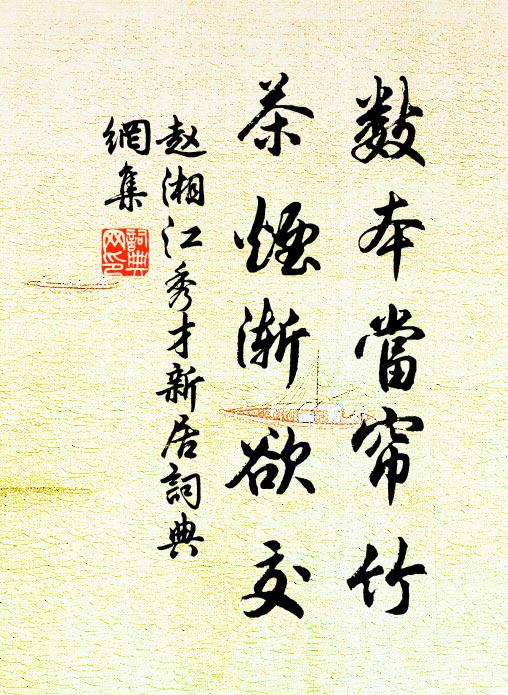 数本當帘竹
茶煙渐欲交
赵湘江秀才新居詞典
網集
詞典
网印